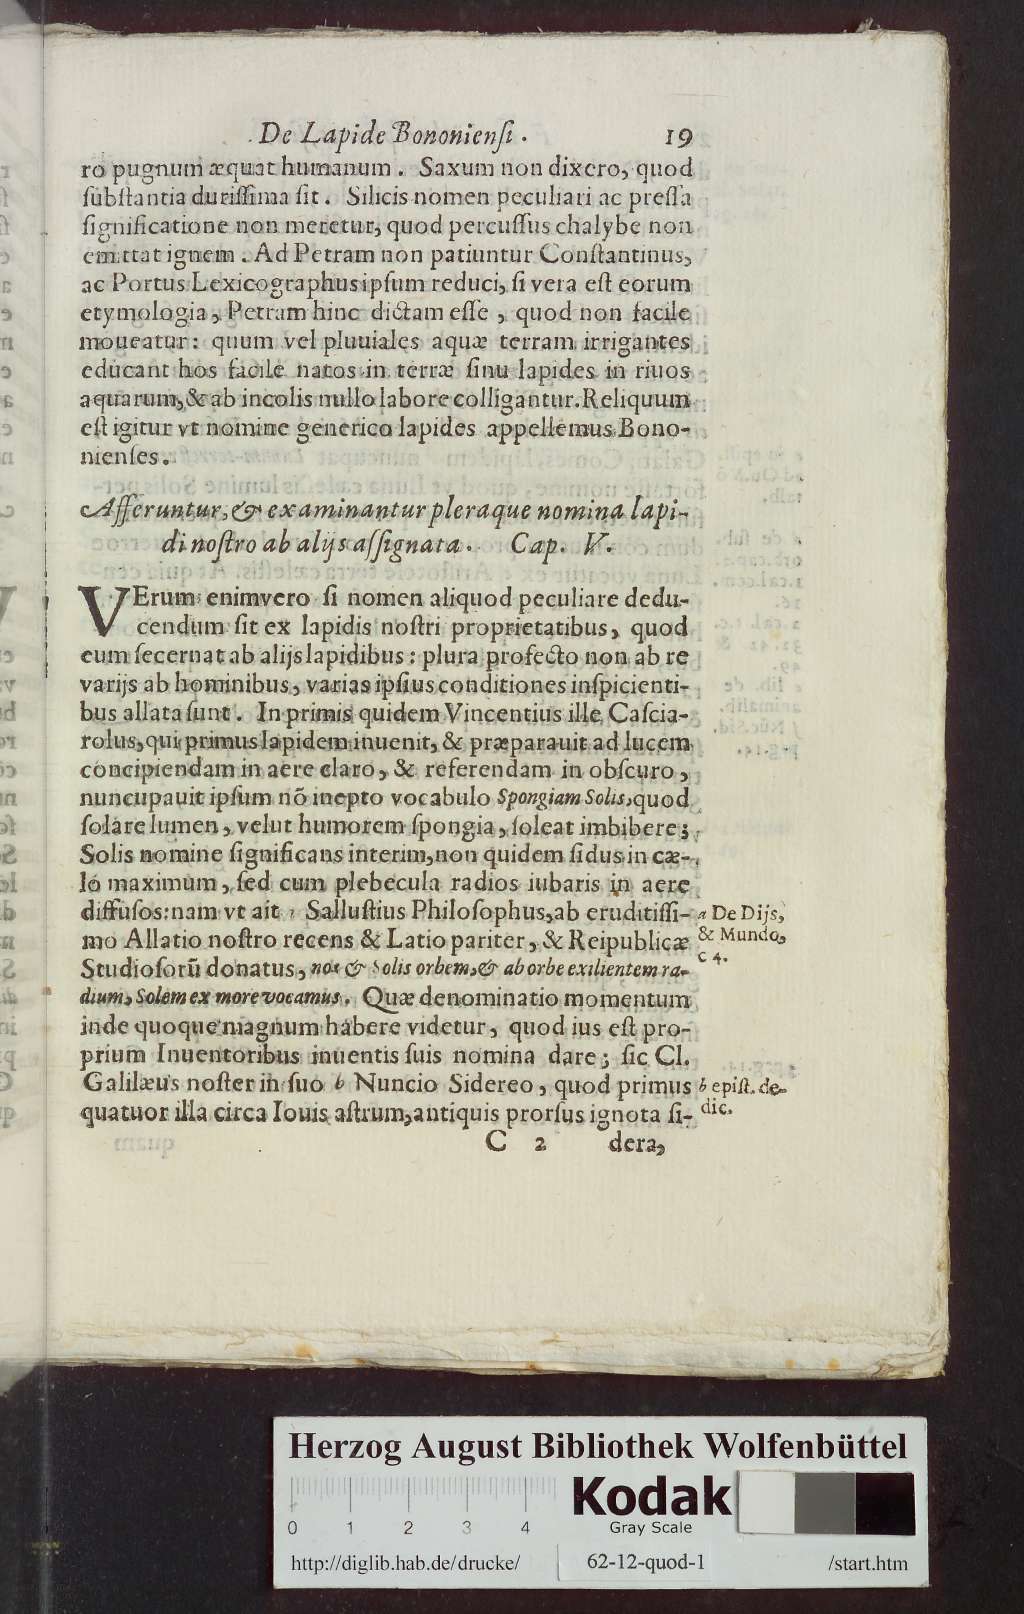 De Lapide Bononienſi. 19
ro pugnum æquat humanum. Saxum non dixero, quod
ſubſtantia duriſſima ſit. Silicis nomen peculiari ac preſſa
ſignificatione non meretur, quod percuſſus chalybe non
emittat ignem. Ad Petram non patiuntur Conſtantinus,
ac Portus Lexicographus ipſum reduci, ſi vera eſt eorum
etymologia, Petram hinc dictam eſſe, quod non facile
moueatur: quum vel pluuiales aquæ terram irrigantes
educant hos facile natos in terræ ſinu lapides in riuos
aquarum, & ab incolis nullo labore colligantur. Reliquum
eſt igitur vt nomine generico lapides appellemus Bono-
nienſes.
Afferuntur, & examinantur pleraque nomina lapi-
di noſtro ab alijs aſſignata. Cap. V.
VErum enimvero ſi nomen aliquod peculiare dedu-
cendum ſit ex lapidis noſtri proprietatibus, quod
eum ſecernat ab alijs lapidibus: plura profecto non ab re
varijs ab hominibus, varias ipſius conditiones inſpicienti-
bus allata ſunt. In primis quidem Vincentius ille Caſcia-
rolus, qui primus lapidem inuenit, & præparauit ad lucem
concipiendam in aere claro, & referendam in obſcuro,
nuncupauit ipſum nõ inepto vocabulo Spongiam Solis, quod
ſolare lumen, velut humorem ſpongia, ſoleat imbibere;
Solis nomine ſignificans interim, non quidem ſidus in cæ-
lo maximum, ſed cum plebecula radios iubaris in aere
diffuſos: nam vt ait a Salluſtius Philoſophus, ab eruditiſſi-
mo Allatio noſtro recens & Latio pariter, & Reipublicæ
Studioſorũ donatus, nos & Solis orbem, & ab orbe exilientem ra-
dium, Solem ex more vocamus. Quæ denominatio momentum
inde quoque magnum habere videtur, quod ius eſt pro-
prium Inuentoribus inuentis ſuis nomina dare; ſic Cl.
Galilæus noſter in ſuo b Nuncio Sidereo, quod primus
quatuor illa circa Iouis aſtrum, antiquis prorſus ignota ſi-
C 2 dera,
a De Dijs,
& Mundo,
c 4.
b epiſt. de-
dic.
Herzog August Bibliothek Wolfenbüttel
0 1 2 3 4
Kodak
Gray Scale
http://diglib.hab.de/drucke/ 62-12-quod-1 /start.htm